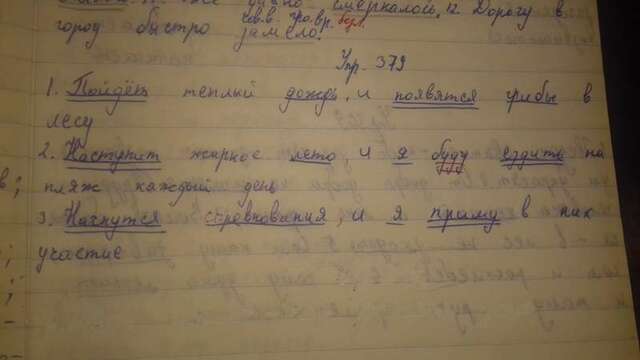 смеркалось. 12. Дорогу в
город быстро замело.
Упр. 379
1. Пойдёт теплый дождь, и появятся грибы в
лесу
2. Наступит жаркое лето, и я буду ездить на
пляж каждый день
3. Начнутся соревнования, и я приму в них
участие